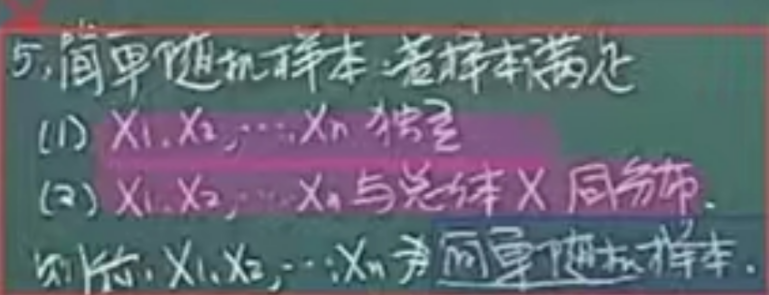 5.简单随机样本:若样本满足
(1) X₁,X₂,…,Xₙ 独立
(2) X₁,X₂,…,Xₙ 与总体 X 同分布.
则称 X₁,X₂,…,Xₙ 为简单随机样本.